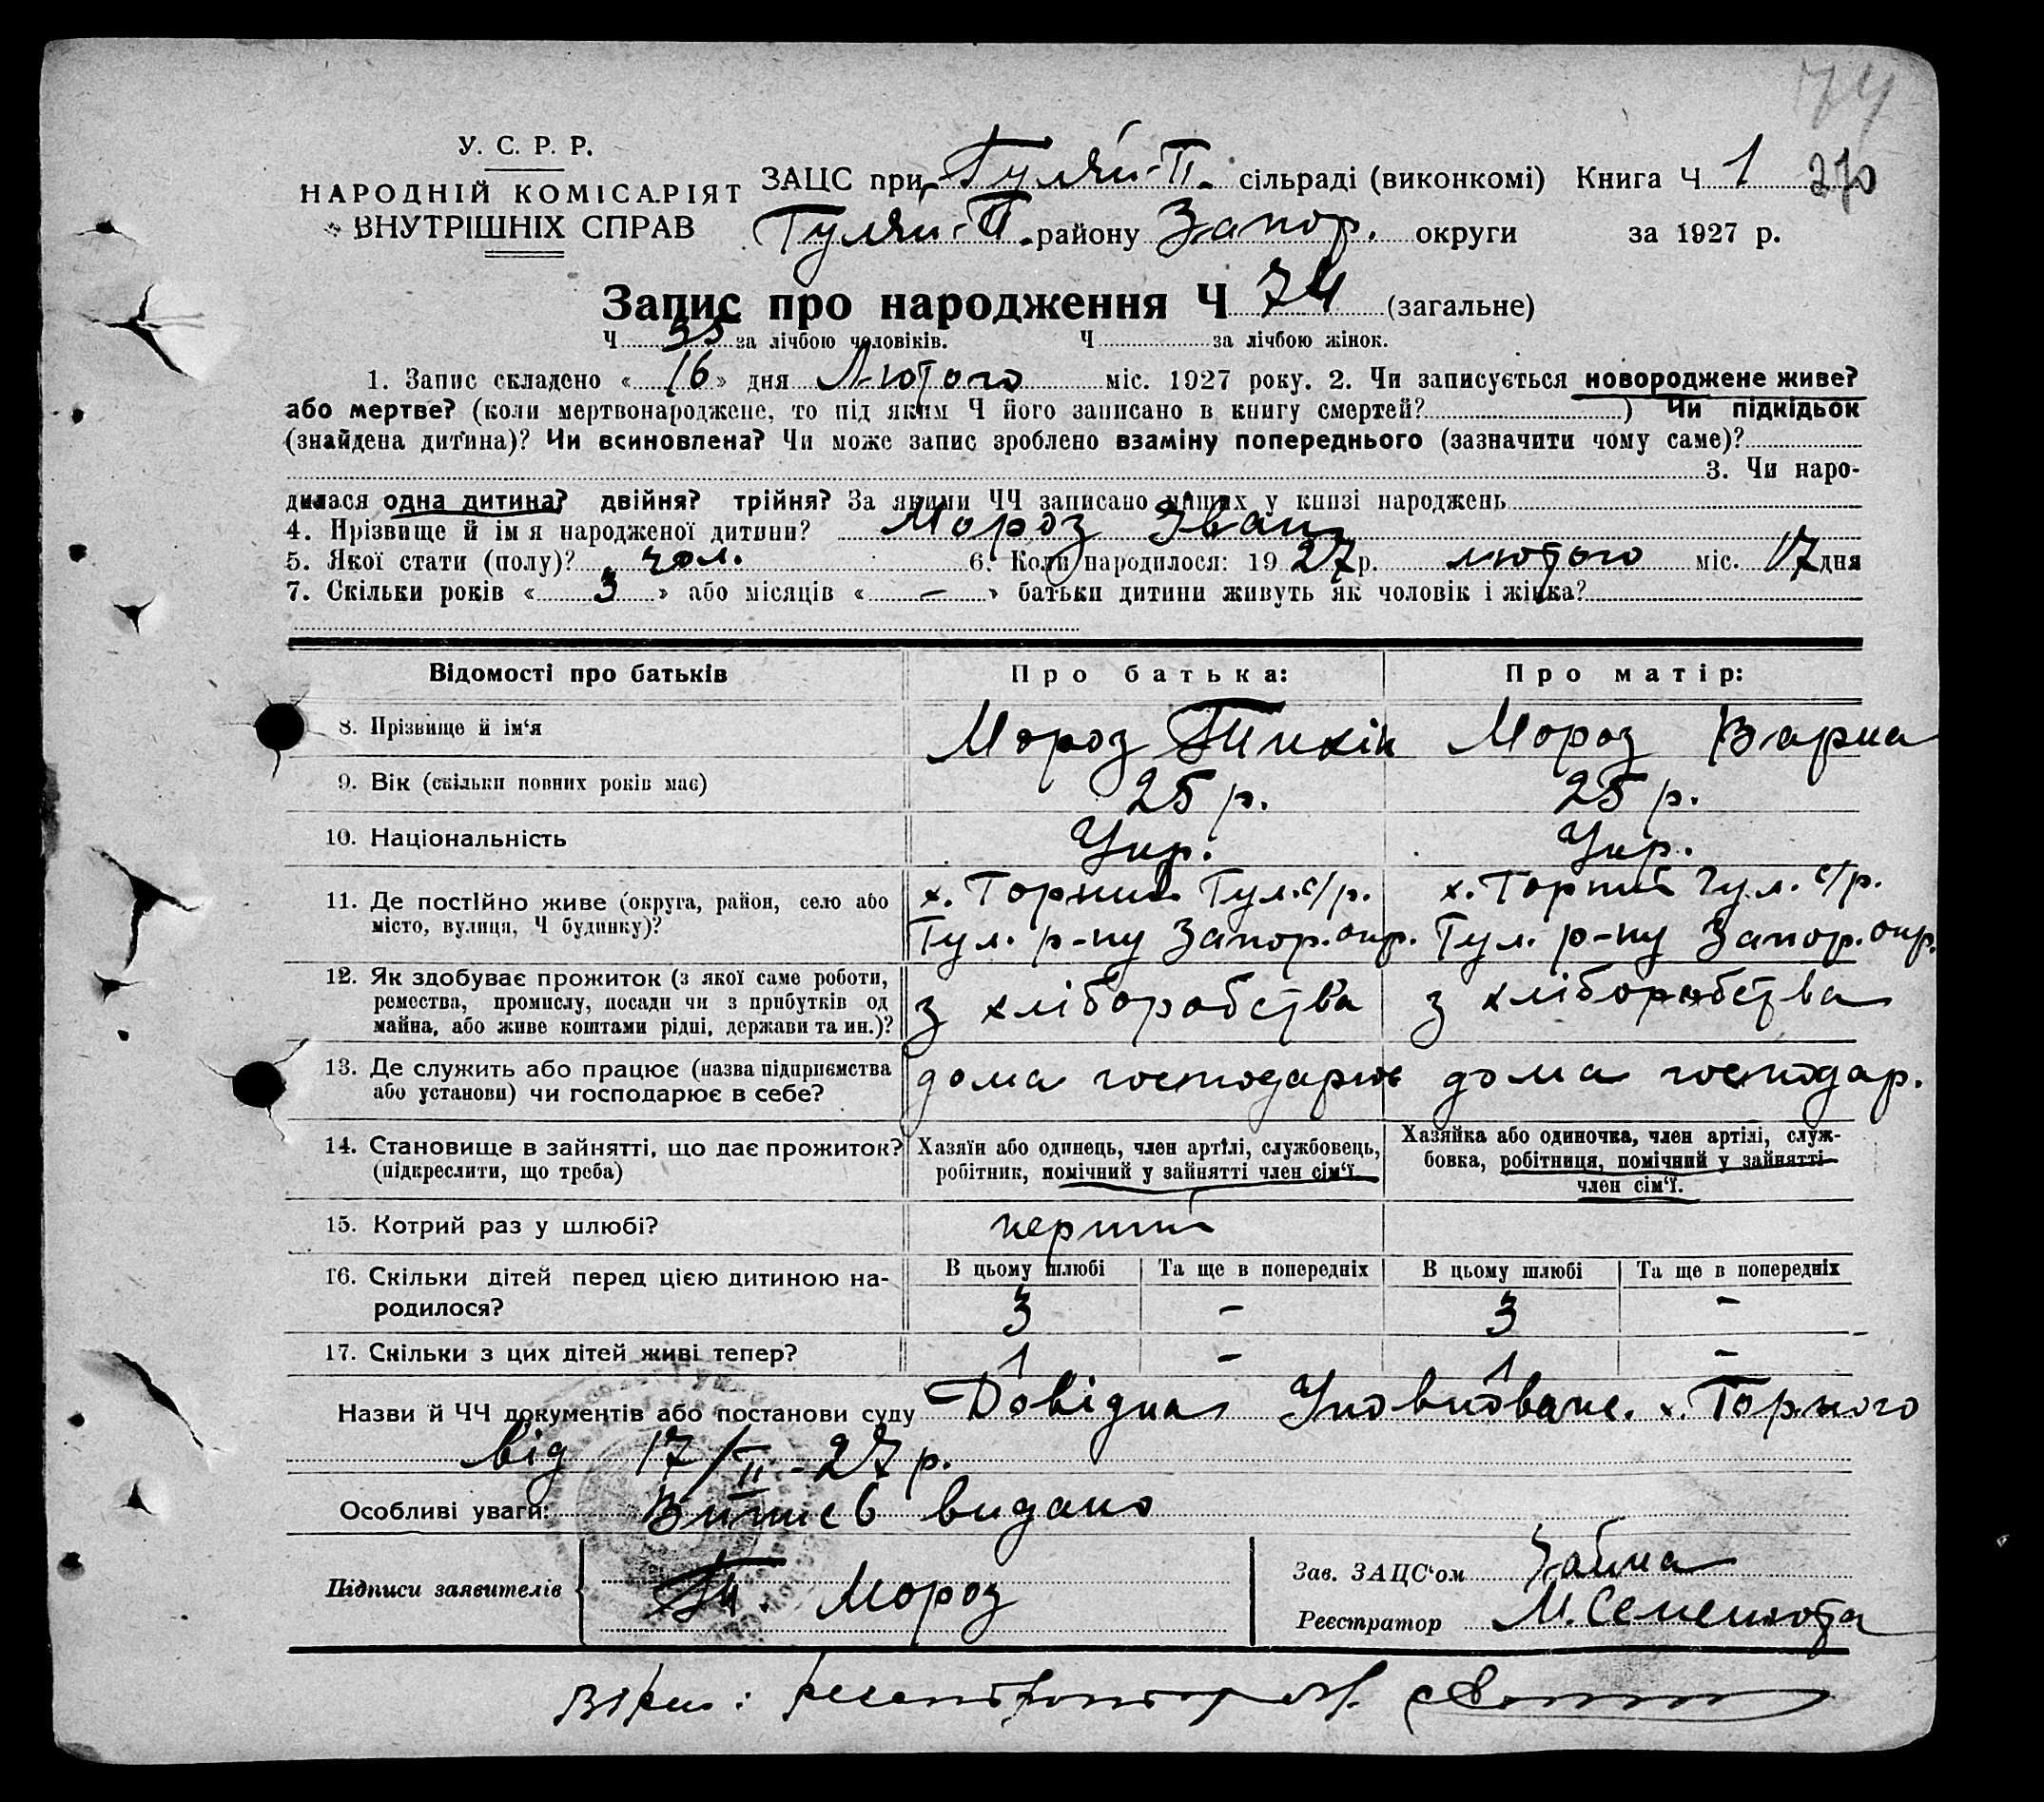 74
У. С. Р. Р.
НАРОДНІЙ КОМІСАРІЯТ
ВНУТРІШНІХ СПРАВ
ЗАЦС при Гуляй-П. сільраді (виконкомі) Книга Ч 1 270
Гуляй-П. району Запор. округи за 1927 р.
Запис про народження Ч 74 (загальне)
Ч 35 за лічбою чоловіків. Ч за лічбою жінок.
1. Запис складено « 16 » дня Лютого міс. 1927 року. 2. Чи записується новороджене живе?
або мертве? (коли мертвонароджене, то під яким Ч його записано в книгу смертей? ) Чи підкідьок
(знайдена дитина)? Чи всиновлена? Чи може запис зроблено взаміну попереднього (зазначити чому саме)?
3. Чи наро-
дилася одна дитина? двійня? трійня? За якими ЧЧ записано інших у книзі народжень
4. Прізвище й ім я народженої дитини? Мороз Іван
5. Якої стати (полу)? чол. 6. Коли народилося: 19 27 р. лютого міс. 17 дня
7. Скільки років « 3 » або місяців « — » батьки дитини живуть як чоловік і жінка?
Відомості про батьків Про батька: Про матір:
8. Прізвище й ім‘я Мороз Тихін Мороз Варка
9. Вік (скільки повних років має) 25 р. 25 р.
10. Національність Укр. Укр.
11. Де постійно живе (округа, район, село або місто, вулиця, Ч будинку)?
х. Горний Гул. с/р. х. Горний Гул. с/р.
Гул. р-ну Запор. окр. Гул. р-ну Запор. окр.
12. Як здобуває прожиток (з якої саме роботи,
ремества, промислу, посади чи з прибутків од
майна, або живе коштами рідні, держави та ин.)?
з хліборобства з хліборобства
13. Де служить або працює (назва підприємства
або установи) чи господарює в себе?
дома господарює дома господар.
14. Становище в зайнятті, що дає прожиток?
(підкреслити, що треба)
Хазяїн або одинець, член артілі, службовець,
робітник, помічний у зайнятті член сім‘ї.
Хазяйка або одиночка, член артілі, служ-
бовка, робітниця, помічний у зайнятті
член сім‘ї.
15. Котрий раз у шлюбі? перший
16. Скільки дітей перед цією дитиною на-
родилося?
В цьому шлюбі Та ще в попередніх В цьому шлюбі Та ще в попередніх
3 - 3 -
17. Скільки з цих дітей живі тепер? 1 - 1 -
Назви й ЧЧ документів або постанови суду Довідка х. Горного
від 17/II-27 р.
Особливі уваги: видано
Підписи заявителів Ти. Мороз
Зав. ЗАЦС‘ом
Реєстратор М. Семенюта